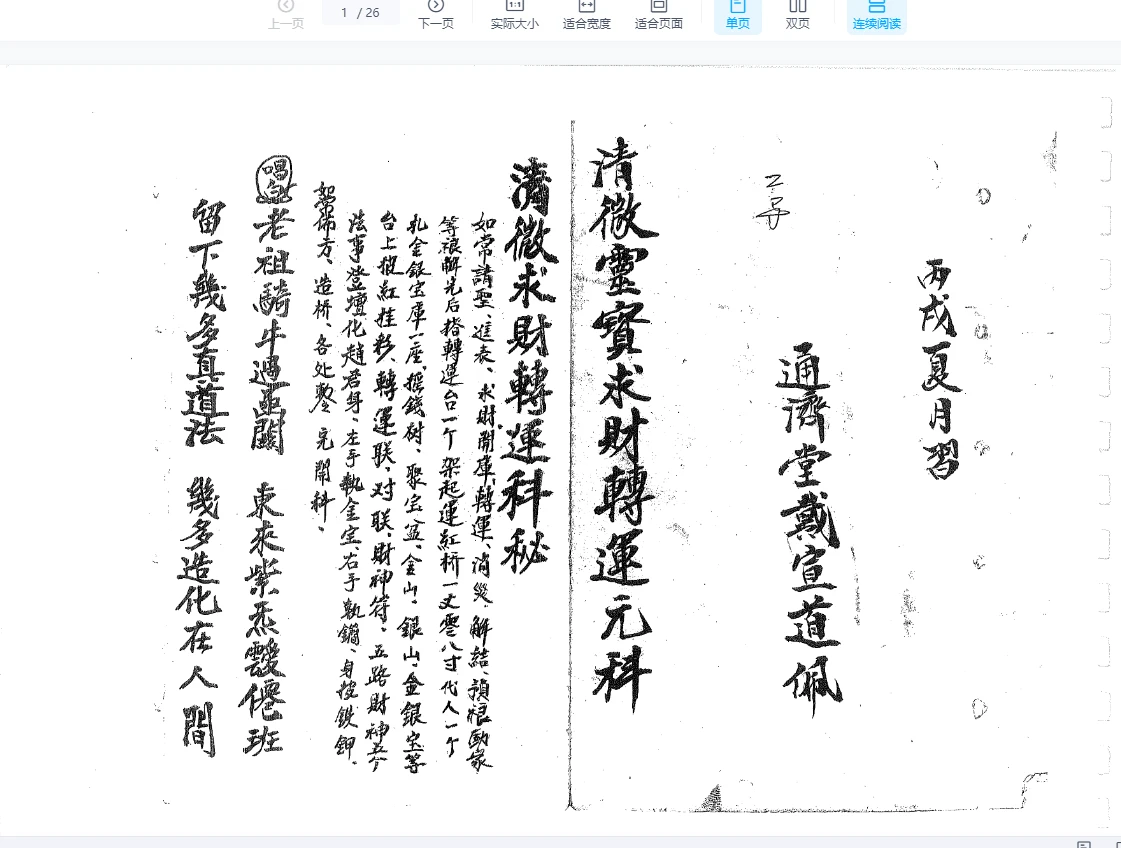 上一页
1 / 26
下一页
实际大小
适合宽度
适合页面
单页
双页
连续阅读
丙戌夏月習
通濟堂戴宣道佩
清微靈寶求財轉運元科
清微求財轉運科秘
如常請聖、進表、求財開庫、轉運、消災、解結、
等 解完后搭轉運台一个架起運紅桥一丈零八寸代人一个
扎金銀宝庫一座、摇錢树、聚宝盆、金山、銀山、金銀宝等
台上披紅挂彩、轉運联、对联、財神符、五路財神五个
法事登壇化趙君身、左手執金宝、右手執鐗、身披鉄鉀、
如常佈方、造桥、各处 完開科、
唱 老祖騎牛過函關 東來紫炁靉僊班
留下幾多真道法 幾多造化在人間